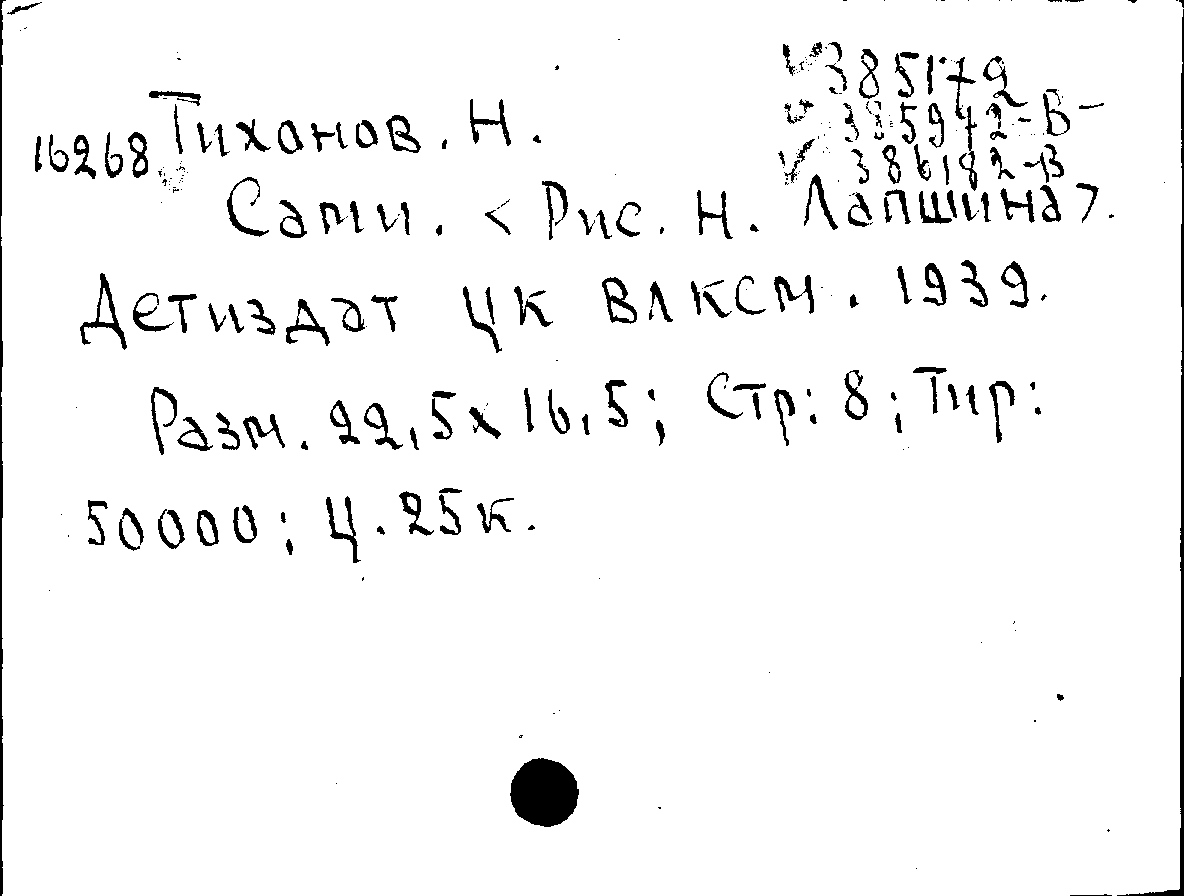 385172
385972-В-
386182-В
16268 Тихонов. Н.
Сами. < Рис. Н. Лапшина >.
Детиздат ЦК ВЛКСМ. 1939.
Разм. 22,5х16,5; Стр: 8; Тир:
50000; Ц. 25к.